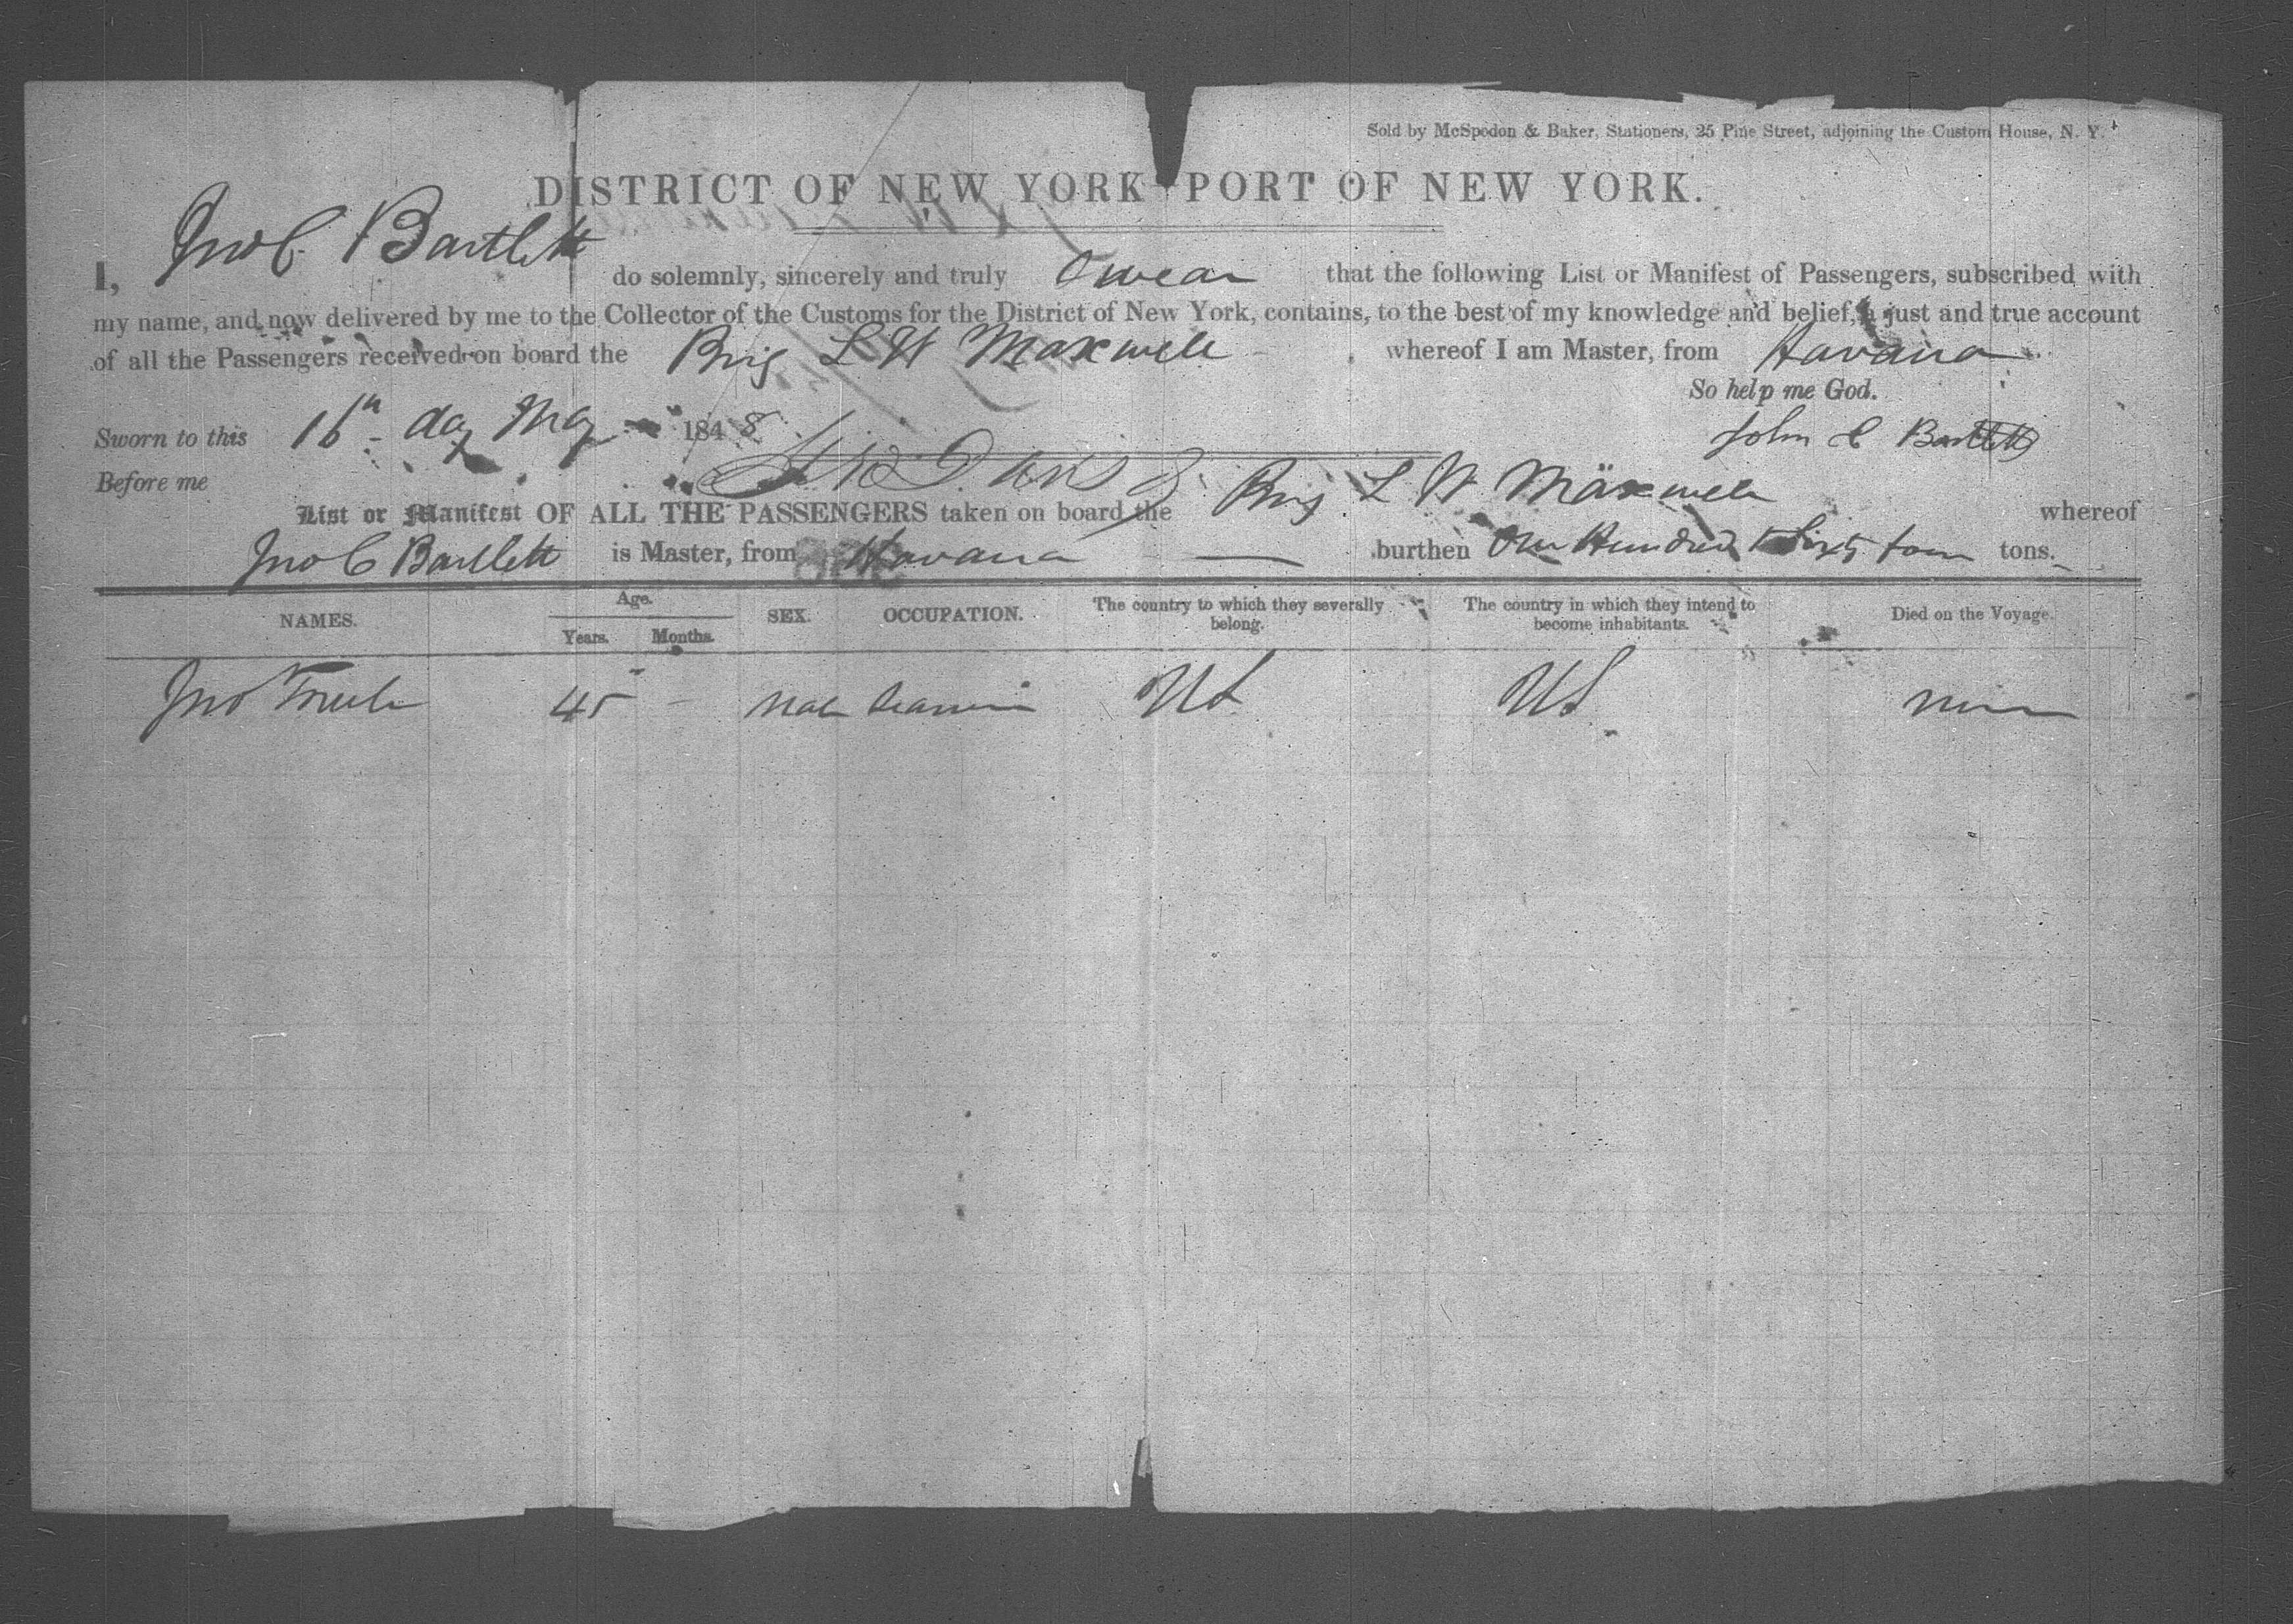 Sold by McSpedon & Baker, Stationers, 25 Pine Street, adjoining the Custom House, N. Y.
DISTRICT OF NEW YORK PORT OF NEW YORK.
I, Jno C. Bartlett do solemnly, sincerely and truly Swear that the following List or Manifest of Passengers, subscribed with
my name, and now delivered by me to the Collector of the Customs for the District of New York, contains, to the best of my knowledge and belief, a just and true account
of all the Passengers received on board the Brig L W Maxwell whereof I am Master, from Havana
So help me God.
Sworn to this 16th day May 1848 John C Bartlett
Before me
List or Manifest OF ALL THE PASSENGERS taken on board the Brig L W Maxwell whereof
Jno C Bartlett is Master, from Havana burthen One Hundred & Sixty four tons.
NAMES. Age. SEX. OCCUPATION. The country to which they severally belong. The country in which they intend to become inhabitants. Died on the Voyage.
Years. Months.
Jno 45 - Male US US